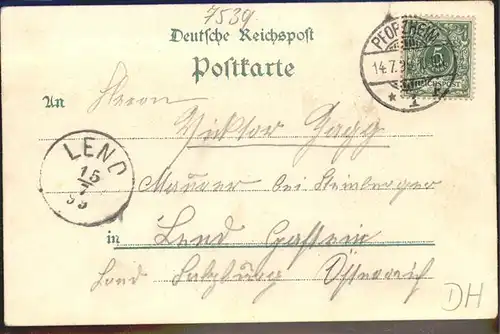 7539
Deutsche Reichspost
Postkarte
PFORZHEIM
14.7.
* 1
5
An Herrn
Viktor
LEND
15
7
99
Maurer bei Steinberger
in Lend Gastein
Land Salzburg Österreich
DH